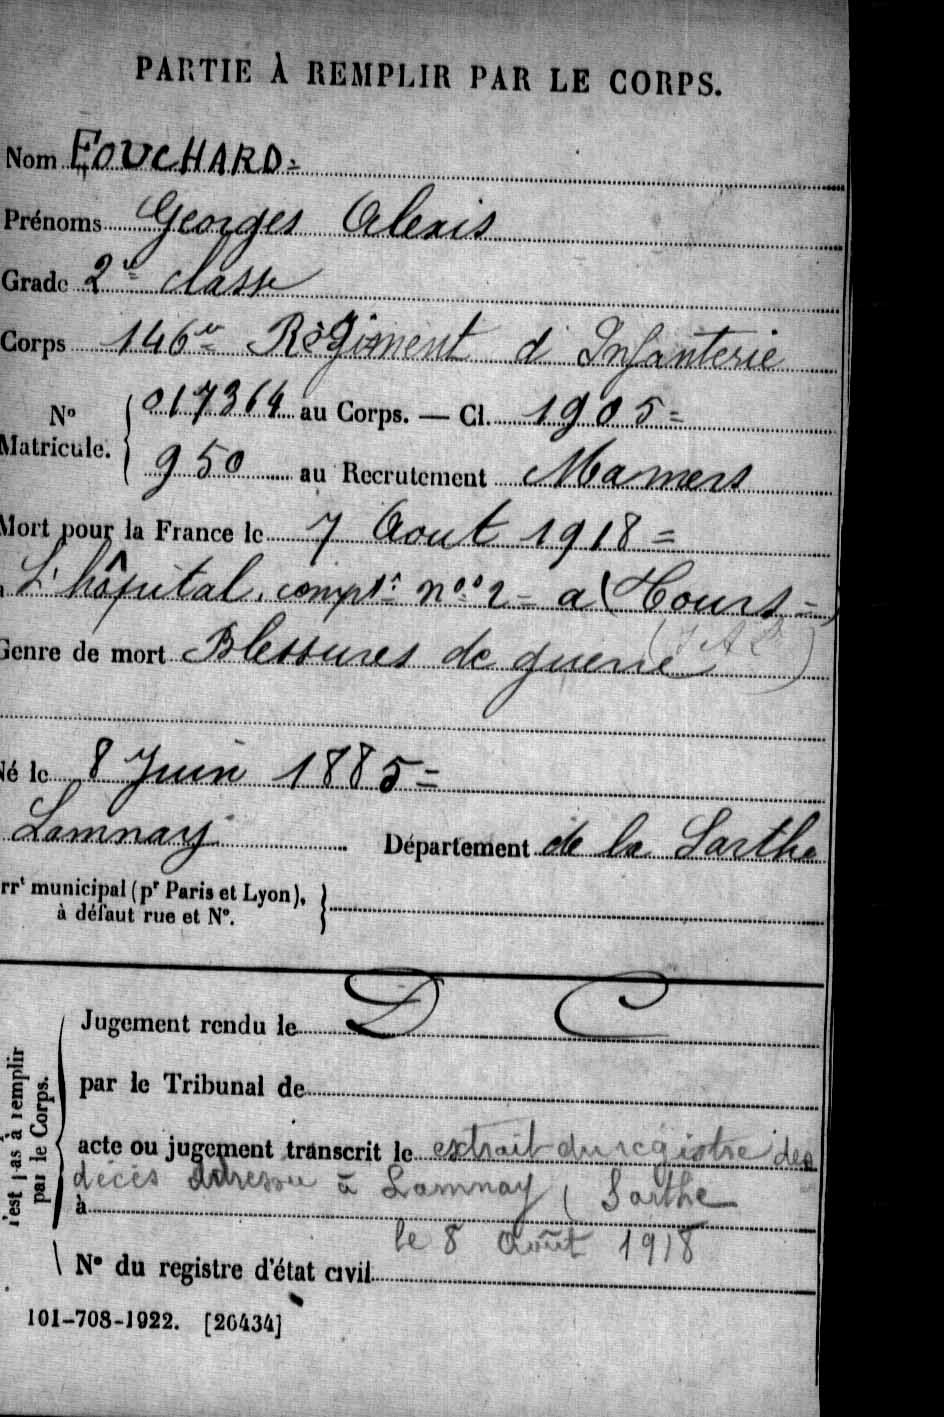 PARTIE À REMPLIR PAR LE CORPS.
Nom FOUCHARD=
Prénoms Georges Alexis
Grade 2e classe
Corps 146e Régiment d'Infanterie
No Matricule. { 017364 au Corps. — Cl. 1905=
950 au Recrutement Mamers
Mort pour la France le 7 Aout 1918=
L'hôpital compre no 2= a (Tours=)
Genre de mort Blessures de guerre
Né le 8 Juin 1885=
Lamnay Département de la Sarthe
rrt municipal (pr Paris et Lyon), à défaut rue et No. }
Jugement rendu le D C
par le Tribunal de
acte ou jugement transcrit le extrait du registre des
décès adressé à Lamnay (Sarthe
à
le 8 août 1918
No du registre d'état civil
'est pas à remplir par le Corps.
101-708-1922. [26434]